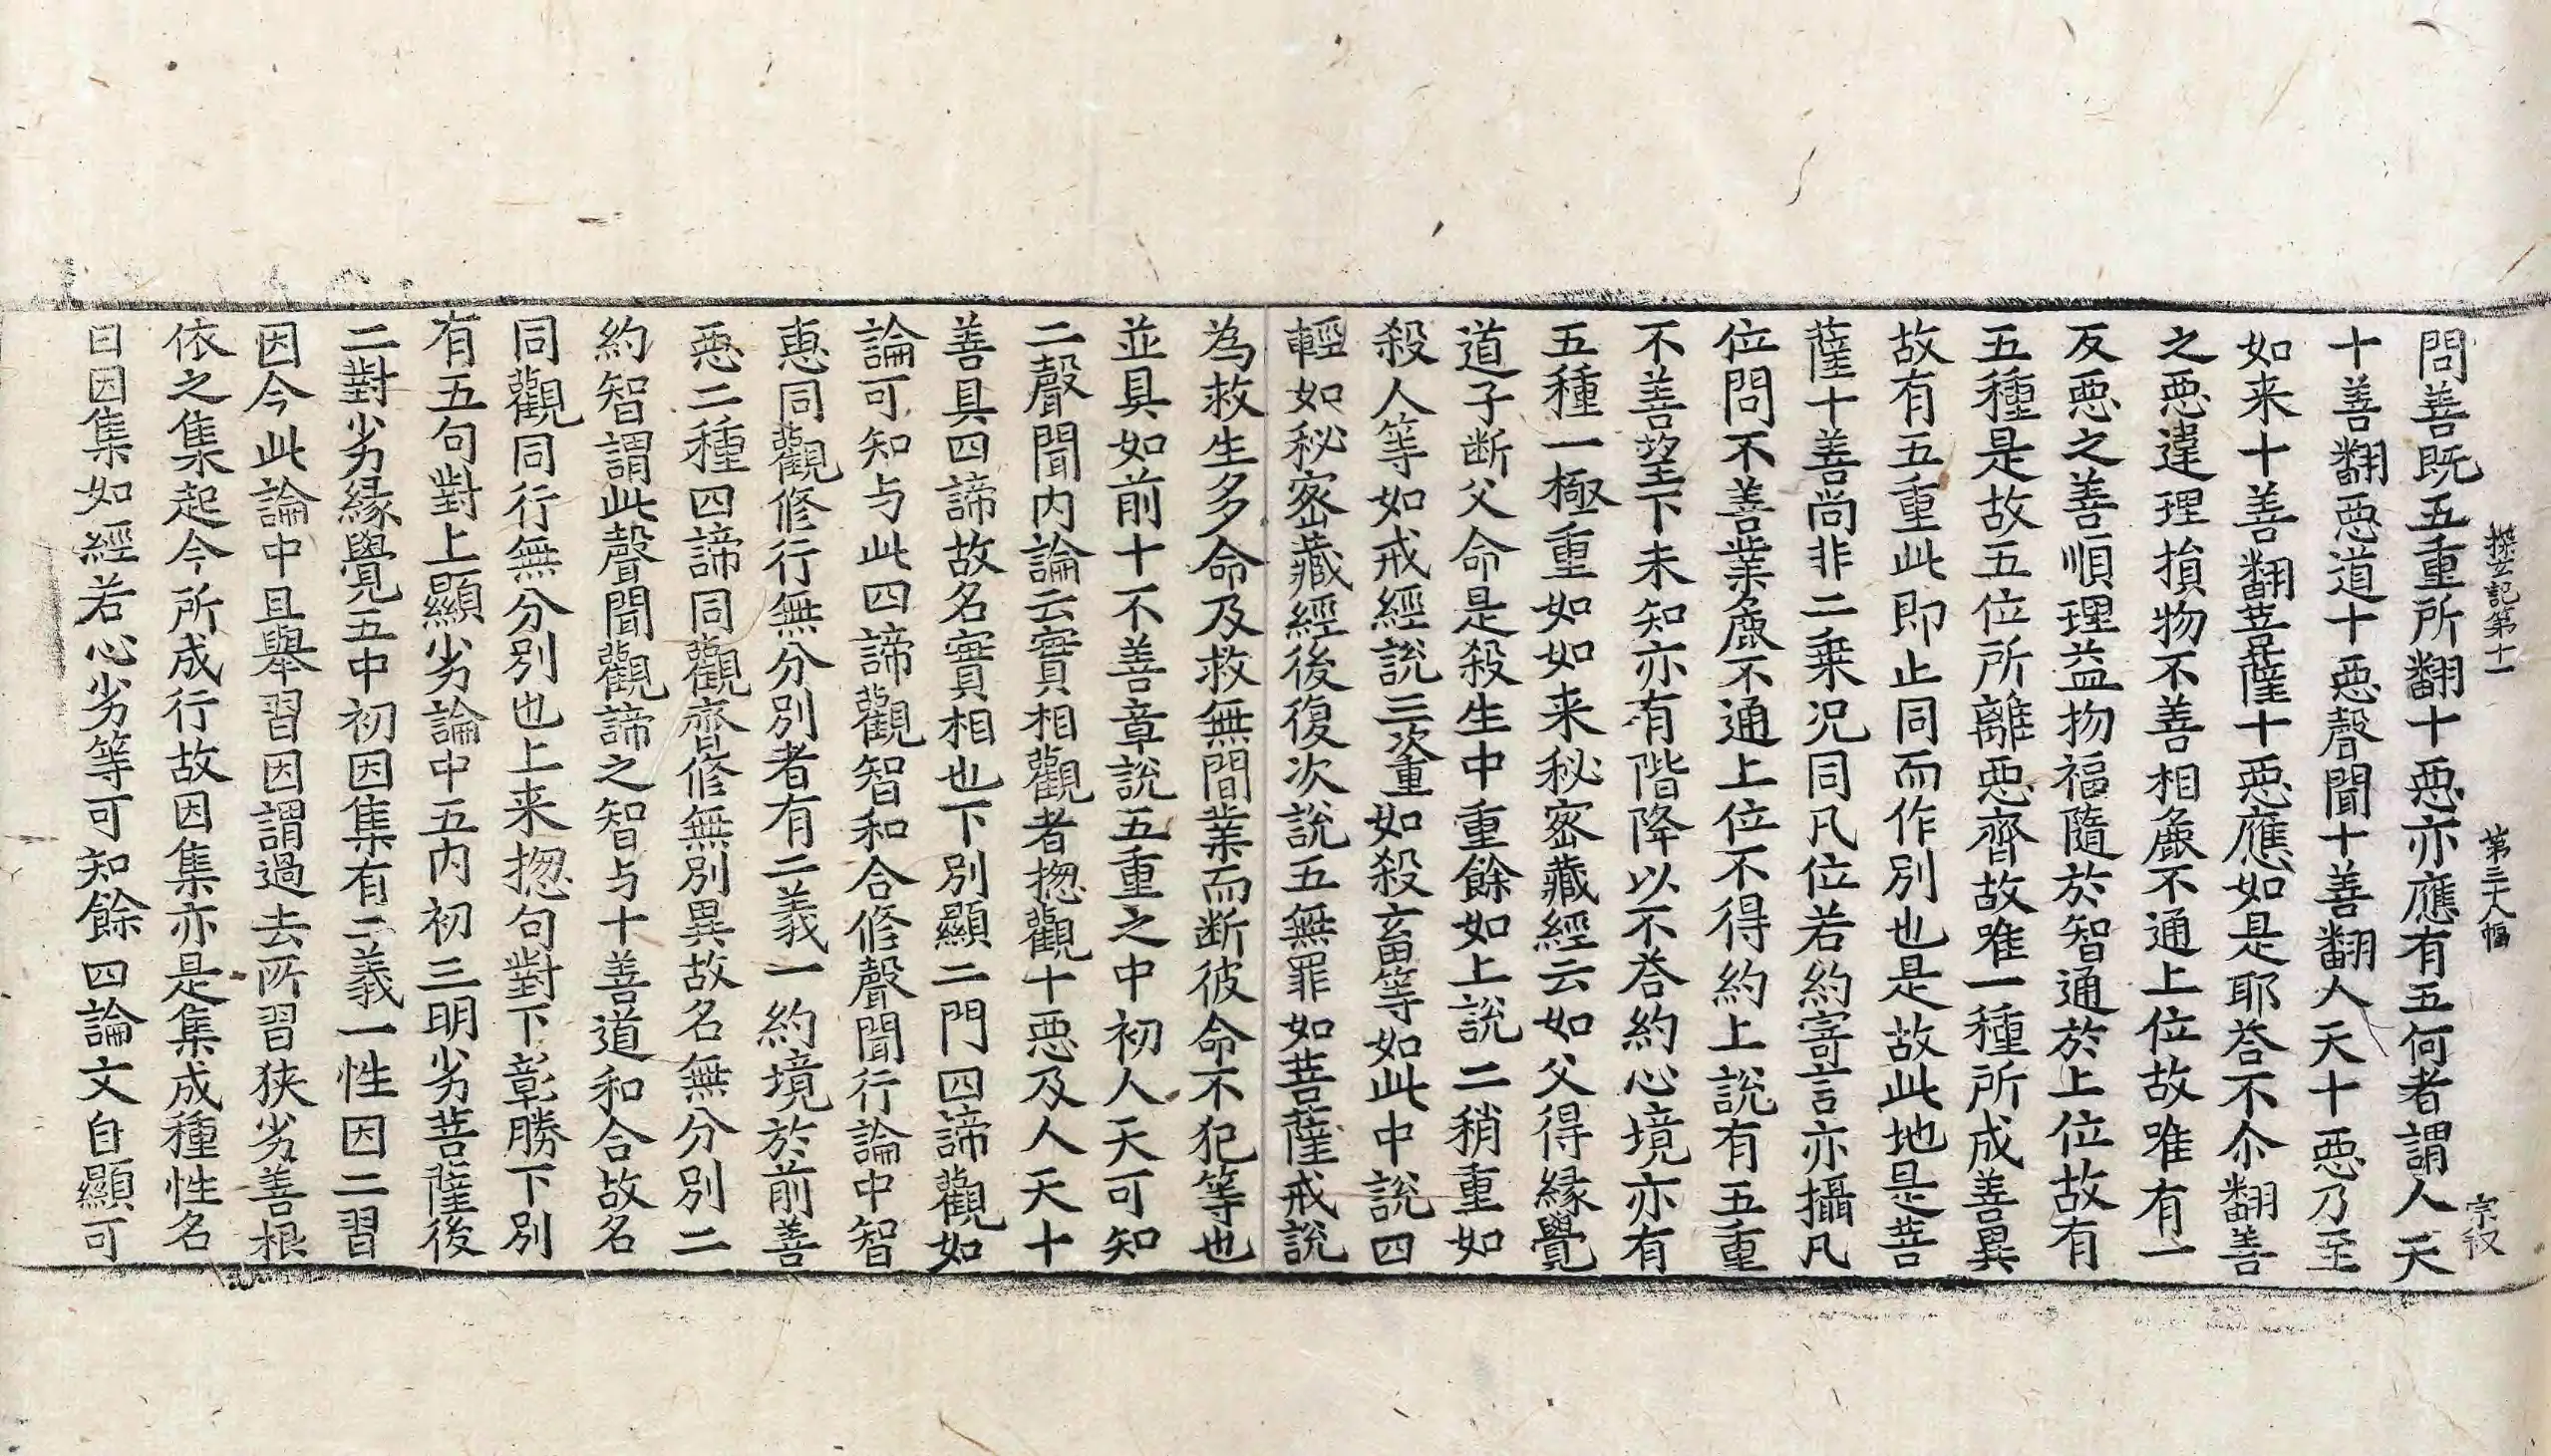 探玄記第十一 第三十八幅 宗叔
問善既五重所翻十惡亦應有五何者謂人天
十善翻惡道十惡聲聞十善翻人天十惡乃至
如来十善翻菩薩十惡應如是耶荅不尒翻善
之惡違理損物不善相麁不通上位故唯有一
反惡之善順理益物福隨於智通於上位故有
五種是故五位所離惡齊故唯一種所成善異
故有五重此即止同而作別也是故此地是菩
薩十善尚非二乗况同凡位若約寄言亦攝凡
位問不善業麁不通上位不得約上說有五重
不善望下未知亦有階降以不荅約心境亦有
五種一極重如如来秘密藏經云如父得縁覺
道子断父命是殺生中重餘如上說二稍重如
殺人等如戒經說三次重如殺畜等如此中說四
輕如秘密藏經後復次說五無罪如菩薩戒說
為救生多命及救無間業而断彼命不犯等也
並具如前十不善章說五重之中初人天可知
二聲聞内論云實相觀者揔觀十惡及人天十
善具四諦故名實相也下別顯二門四諦觀如
論可知与此四諦觀智和合修聲聞行論中智
恵同觀修行無分別者有二義一約境於前善
惡二種四諦同觀齊修無別異故名無分別二
約智謂此聲聞觀諦之智与十善道和合故名
同觀同行無分別也上来揔句對下彰勝下別
有五句對上顯劣論中五内初三明劣菩薩後
二對劣縁覺五中初因集有二義一性因二習
因今此論中且舉習因謂過去所習狭劣善根
依之集起今所成行故因集亦是集成種性名
曰因集如經若心劣等可知餘四論文自顯可